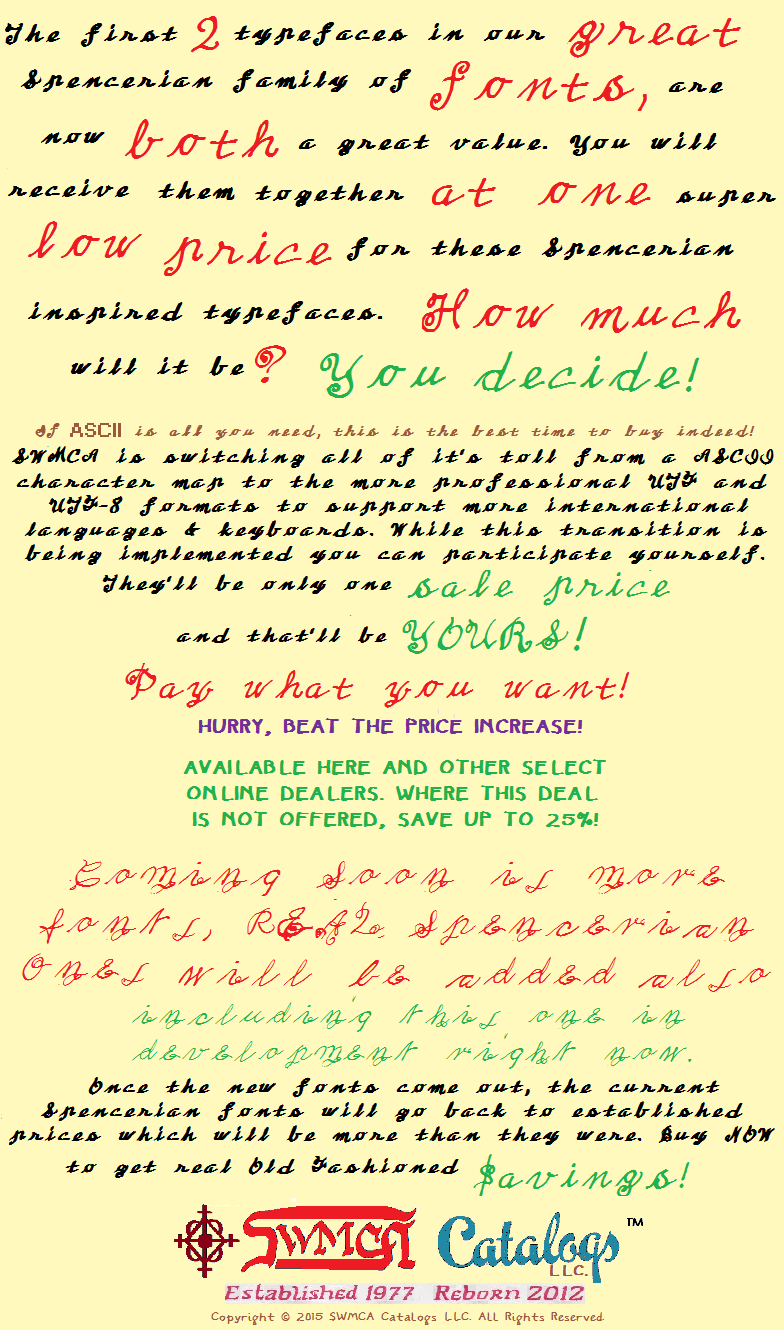 The first 2 typefaces in our great
Spencerian family of fonts, are
now both a great value. You will
receive them together at one super
low price for these Spencerian
inspired typefaces. How much
will it be? You decide!
If ASCII is all you need, this is the best time to buy indeed!
SWMCA is switching all of it's toll from a ASCII
character map to the more professional UTF and
UTF-8 formats to support more international
languages & keyboards. While this transition is
being implemented you can participate yourself.
They'll be only one sale price
and that'll be YOURS!
Pay what you want!
HURRY, BEAT THE PRICE INCREASE!
AVAILABLE HERE AND OTHER SELECT
ONLINE DEALERS. WHERE THIS DEAL
IS NOT OFFERED, SAVE UP TO 25%!
Coming Soon is more
fonts, REAL Spencerian
Ones will be added also
including this one in
development right now.
Once the new fonts come out, the current
Spencerian fonts will go back to established
prices which will be more than they were. Buy NOW
to get real Old Fashioned $avings!
SWMCA Catalogs ™
LLC.
Established 1977 Reborn 2012
Copyright © 2015 SWMCA Catalogs LLC. All Rights Reserved.